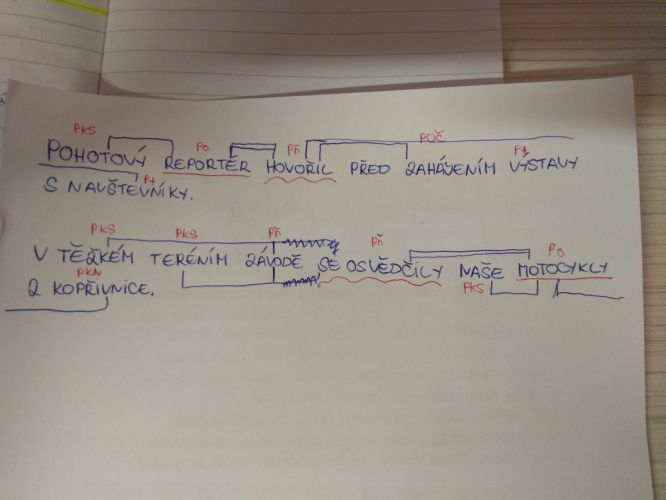 PKS PO PŘ POČ PT
POHOTOVÝ REPORTÉR HOVOŘIL PŘED ZAHÁJENÍM VÝSTAVY
PT
S NAVŠTĚVNÍKY.
PKS PKS PŘ PŘ PO
V TĚŽKÉM TERÉNÍM ZÁVODĚ SE OSVĚDČILY NAŠE MOTOCYKLY
PKN PKS
Z KOPŘIVNICE.